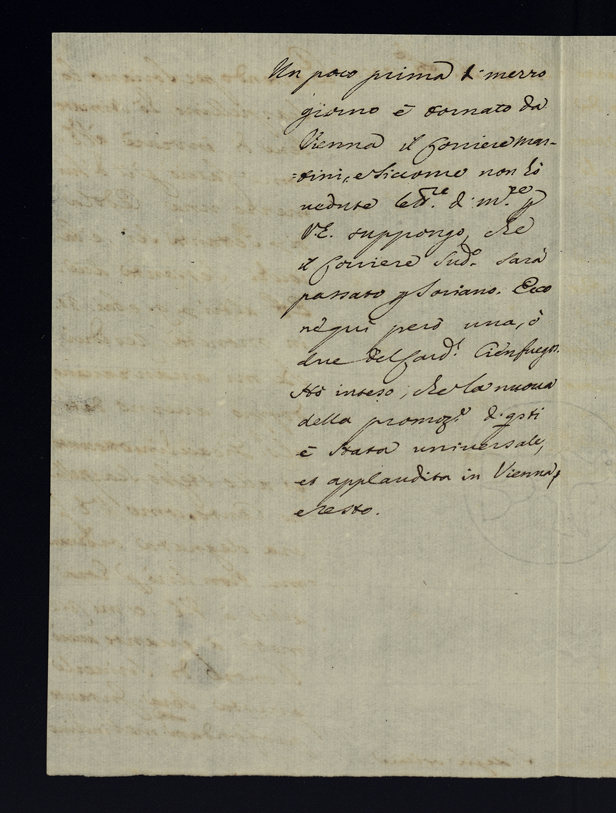 Un poco prima di mezzo
giorno è tornato da
Vienna il Corriere Mar-
=tini, e siccome non hò
vedute lettre di m.re p
V.E. suppongo, che
il Corriere sud.o sarà
passato p Soriano. Ecco
ne qui però una, ò
due del Card.l Cienfuegos.
Hò inteso, che la nuova
della promoz.e di q.sti
è stata universale,
et applaudita in Vienna,
e resto.